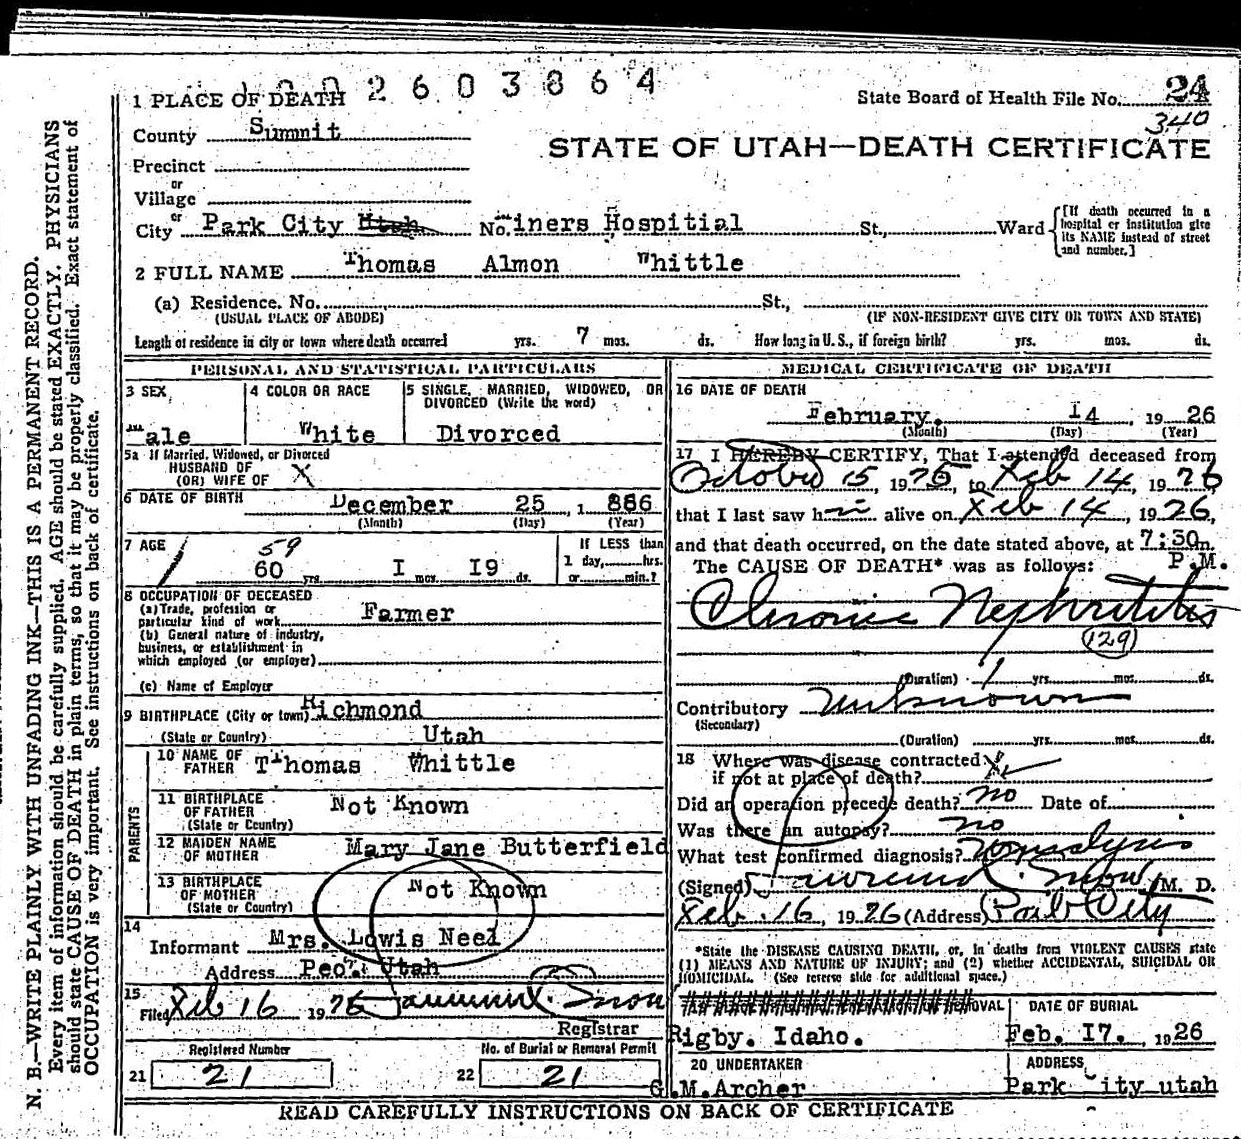 1002603864
1 PLACE OF DEATH
State Board of Health File No. 24
340
County Summit
STATE OF UTAH—DEATH CERTIFICATE
Precinct
or
Village
or
City Park City Utah No. Miners Hospitial St., Ward
[If death occurred in a hospital or institution give its NAME instead of street and number.]
2 FULL NAME Thomas Almon Whittle
(a) Residence. No. St.,
(USUAL PLACE OF ABODE) (IF NON-RESIDENT GIVE CITY OR TOWN AND STATE)
Length of residence in city or town where death occurred yrs. 7 mos. ds. How long in U. S., if foreign birth? yrs. mos. ds.
PERSONAL AND STATISTICAL PARTICULARS
3 SEX
Male
4 COLOR OR RACE
White
5 SINGLE, MARRIED, WIDOWED, OR
DIVORCED (Write the word)
Divorced
5a If Married, Widowed, or Divorced
HUSBAND OF
(OR) WIFE OF X
6 DATE OF BIRTH December 25, 1 886
(Month) (Day) (Year)
7 AGE
59
60 yrs. I mos. I9 ds.
If LESS than
1 day, hrs.
or min.?
8 OCCUPATION OF DECEASED
(a) Trade, profession or
particular kind of work Farmer
(b) General nature of industry,
business, or establishment in
which employed (or employer)
(c) Name of Employer
9 BIRTHPLACE (City or town) Richmond
(State or Country) Utah
PARENTS
10 NAME OF
FATHER Thomas Whittle
11 BIRTHPLACE
OF FATHER Not Known
(State or Country)
12 MAIDEN NAME
OF MOTHER Mary Jane Butterfield
13 BIRTHPLACE
OF MOTHER Not Known
(State or Country)
14
Informant Mrs. Lowis Neel
Address Peoa Utah
15
Filed Feb 16 1926 Laurence L. Snow
Registrar
Registered Number
21 21
No. of Burial or Removal Permit
22 21
MEDICAL CERTIFICATE OF DEATH
16 DATE OF DEATH
February. I4, 19 26
(Month) (Day) (Year)
17 I HEREBY CERTIFY, That I attended deceased from
October 15, 1925, to Feb 14, 1926
that I last saw h alive on Feb 14, 1926,
and that death occurred, on the date stated above, at 7:30m.
P.M.
The CAUSE OF DEATH* was as follows:
Chronic Nephritits
(129)
(Duration) 1 yrs. mos. ds.
Contributory unknown
(Secondary)
(Duration) yrs. mos. ds.
18 Where was disease contracted
if not at place of death?
Did an operation precede death? no Date of
Was there an autopsy? no
What test confirmed diagnosis?
(Signed) Laurence L. Snow M. D.
Feb. 16, 1926 (Address) Park City
*State the DISEASE CAUSING DEATH, or, in deaths from VIOLENT CAUSES state
(1) MEANS AND NATURE OF INJURY; and (2) whether ACCIDENTAL, SUICIDAL OR
HOMICIDAL. (See reverse side for additional space.)
OVAL
Rigby. Idaho.
DATE OF BURIAL
Feb. I7., 1926
20 UNDERTAKER
G.M.Archer
ADDRESS
Park City utah
READ CAREFULLY INSTRUCTIONS ON BACK OF CERTIFICATE
N. B.—WRITE PLAINLY WITH UNFADING INK—THIS IS A PERMANENT RECORD.
Every item of information should be carefully supplied. AGE should be stated EXACTLY. PHYSICIANS
should state CAUSE OF DEATH in plain terms, so that it may be properly classified. Exact statement of
OCCUPATION is very important. See instructions on back of certificate.